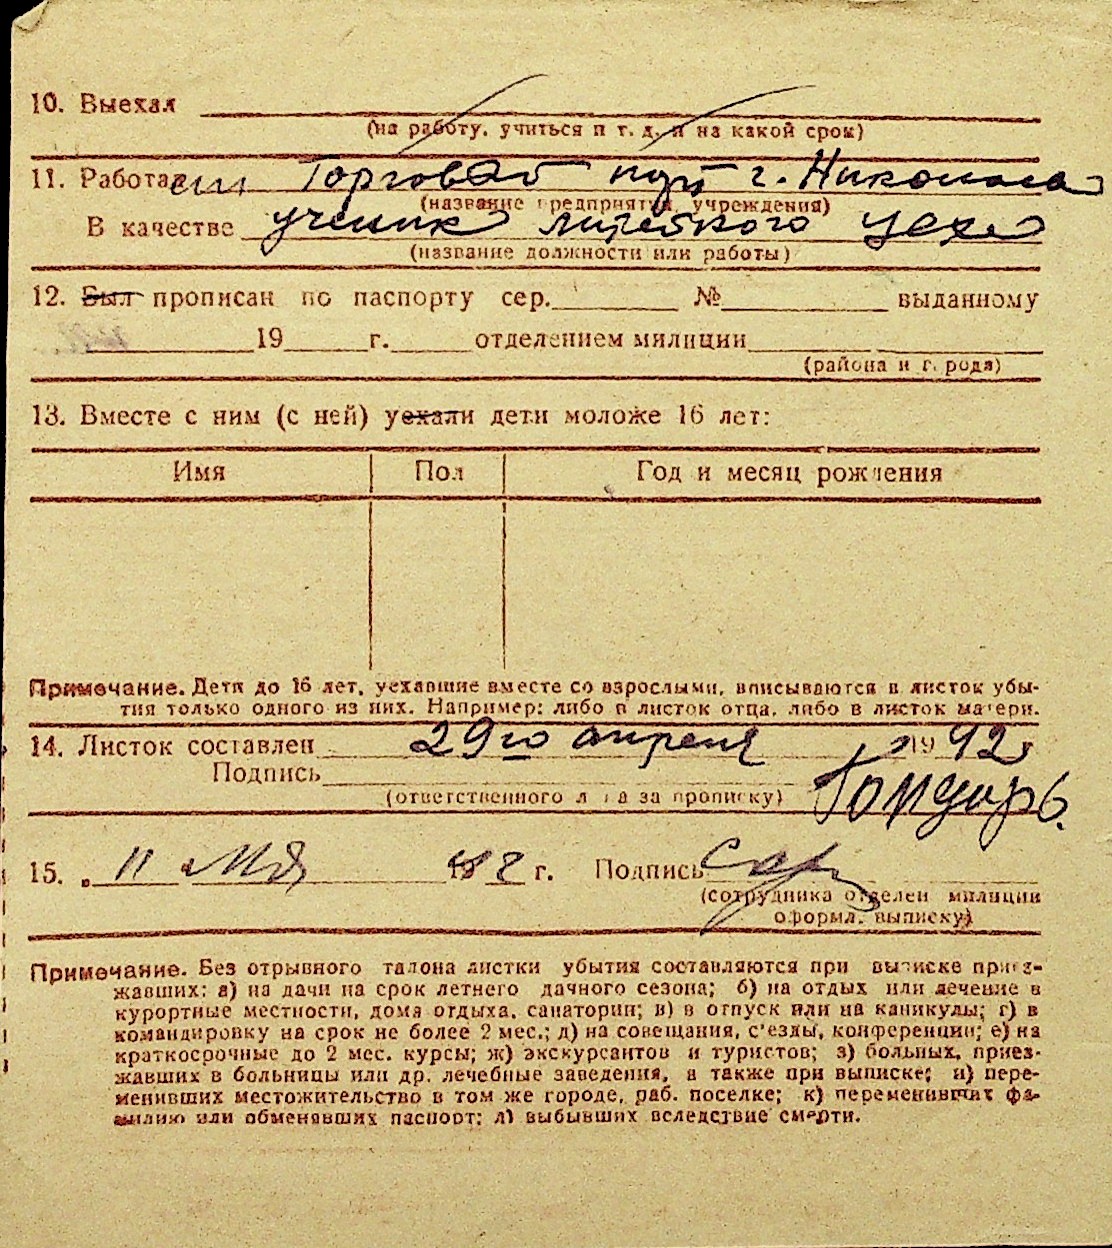 10. Выехал
(на работу, учиться и т. д. и на какой срок)
11. Работал Торговый порт г. Николаев
(название предприятия, учреждения)
В качестве ученик литейного цеха
(название должности или работы)
12. Был прописан по паспорту сер. № выданному
19 г. отделением милиции
(района и города)
13. Вместе с ним (с ней) уехали дети моложе 16 лет:
Имя Пол Год и месяц рождения
Примечание. Дети до 16 лет, уехавшие вместе со взрослыми, вписываются в листок убы-
тия только одного из них. Например: либо в листок отца, либо в листок матери.
14. Листок составлен 29го апреля 1942
Подпись
(ответственного лица за прописку)
15. „11 мая г. Подпись
(сотрудника отделен милиции
оформл. выписку)
Примечание. Без отрывного талона листки убытия составляются при выписке приез-
жавших: а) на дачи на срок летнего дачного сезона; б) на отдых или лечение в
курортные местности, дома отдыха, санатории; в) в отпуск или на каникулы; г) в
командировку на срок не более 2 мес.; д) на совещания, с'езды, конференции; е) на
краткосрочные до 2 мес. курсы; ж) экскурсантов и туристов; з) больных, приез-
жавших в больницы или др. лечебные заведения, а также при выписке; и) пере-
менивших местожительство в том же городе, раб. поселке; к) переменивших фа-
милию или обменявших паспорт; л) выбывших вследствие смерти.